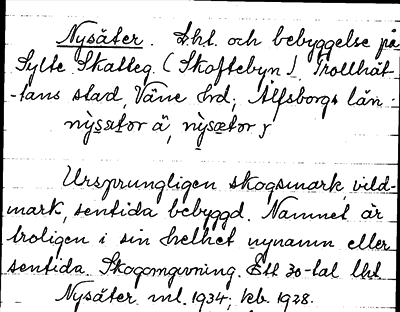 Nysäter. Lht. och bebyggelse på
Sylte Skatteg. (Skoftebyn) Trollhät-
-tans stad, Väne hrd, Älfsborgs län.
nỳsatər ä, nỳsætər y
Ursprungligen skogsmark, vild-
mark, sentida bebyggd. Namnet är
troligen i sin helhet nynamn eller
sentida. Skogomgivning. Ett 30-tal lht.
Nysäter ml. 1934; kb. 1928.